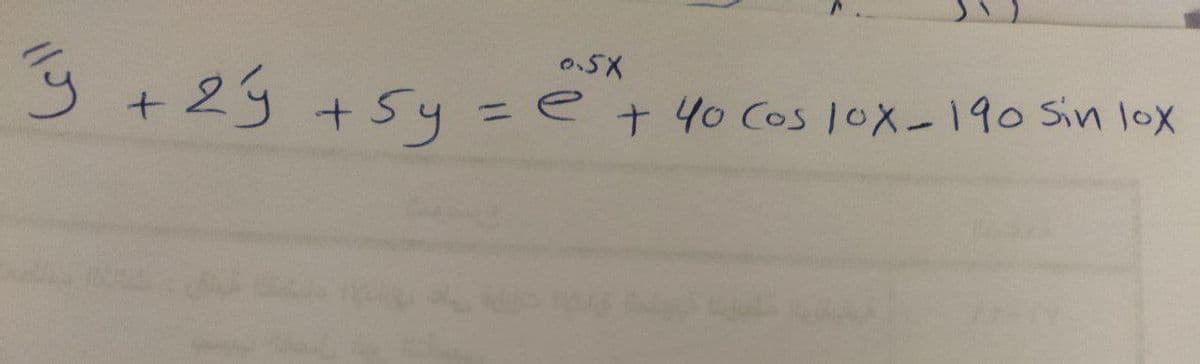 y'' + 2y' + 5y = e^{0.5x} + 40 cos 10x - 190 sin 10x